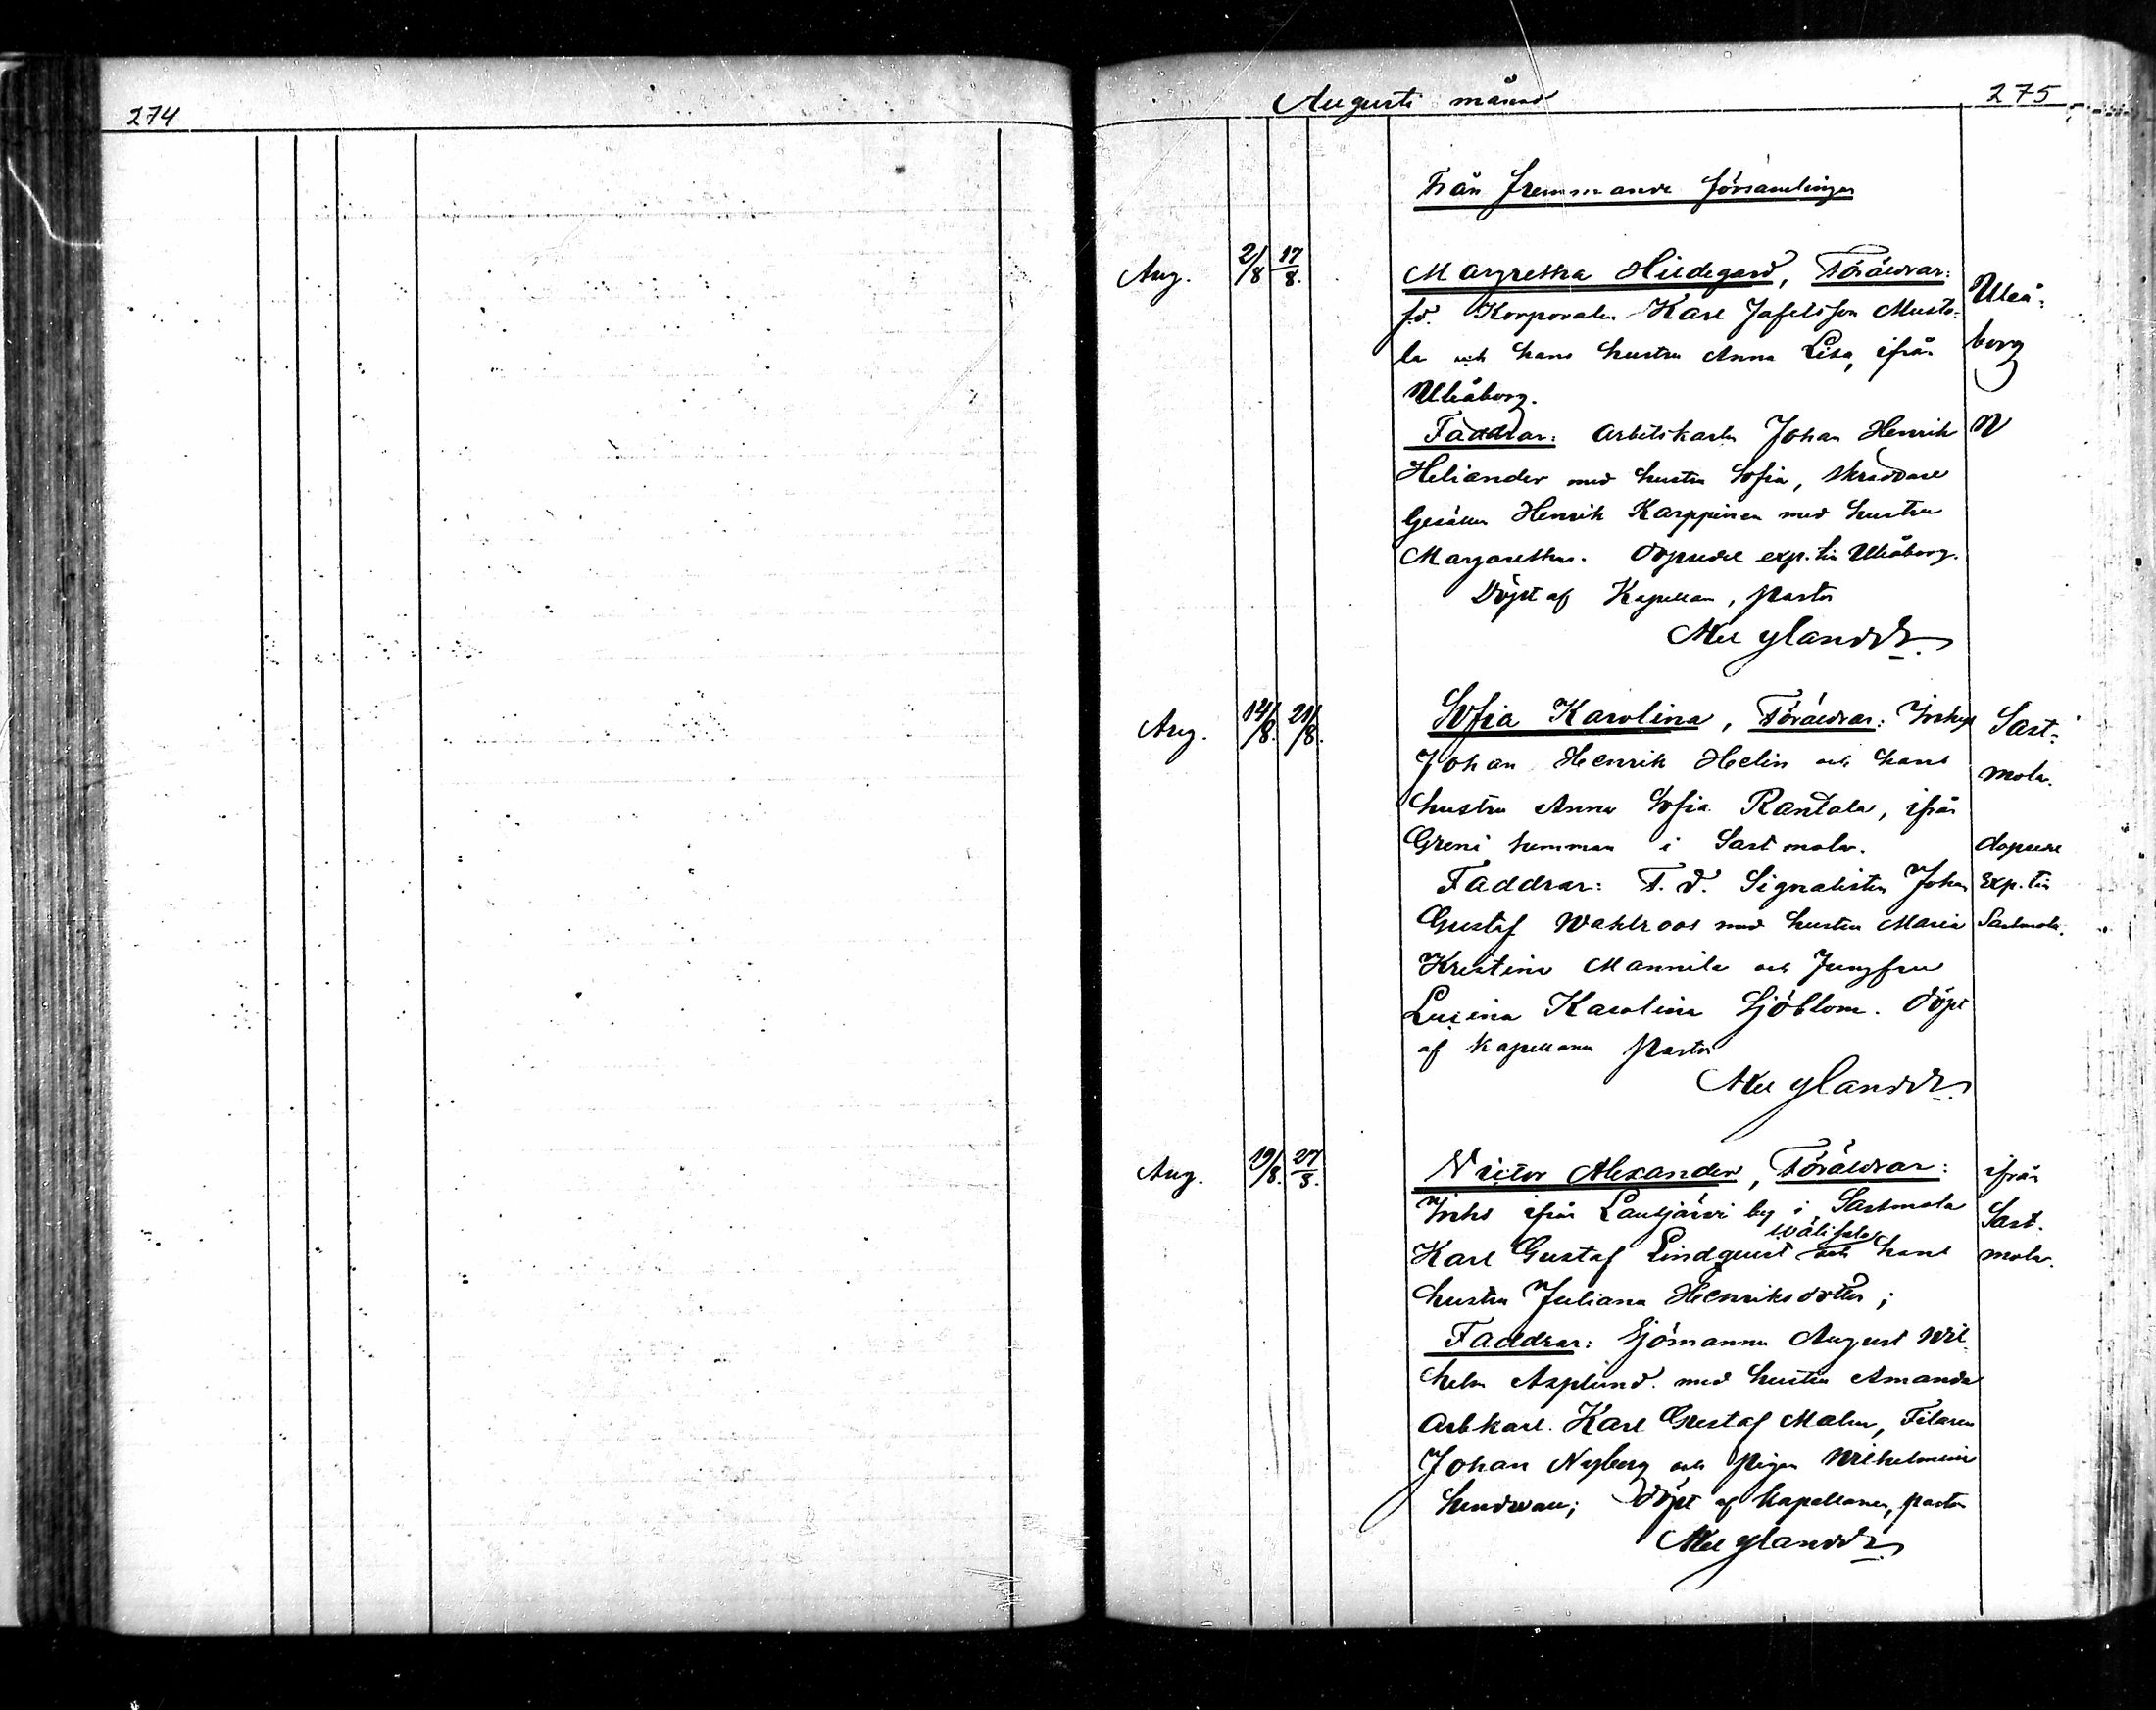 274
Augusti månad 275
Från fremmande församlingar
Aug. 2/8 17/8. Margretha Hildegard, Föräldrar: Uleå-
fd. Korporalen Karl Jafetsson Musto-
la och hans hustru Anna Lisa, ifrån borg
Uleåborg.
Faddrar: Arbetskarln Johan Henrik
Heliander med hustru Sofia, Skräddare
Gesällen Henrik Karppinen med hustru
Margaretha. Dopsedel exp. till Uleåborg.
Döpt af Kapellan, Pastor
Mel ylander.
Aug. 14/8. 21/8. Sofia Karolina, Föräldrar: Inhys Sast-
Johan Henrik Helin och hans mola.
hustru Anna Sofia Rantala, ifrån
Greni hemman i Sastmola. dopsedel
Faddrar: F. d. Signalisten Johan Exp. till
Gustaf Wahlroos med hustru Maria Sastmola.
Kristina Mannila och Jungfru
Lusina Karolina Sjöblom. Döpt
af Kapellanen Pastor
Mel ylander.
Aug. 19/8. 27/8. Victor Alexander, Föräldrar: ifrån
Inhs ifrån Lautjärvi by i Sastmola Sast-
wälisalo
Karl Gustaf Lindqvist och hans mola.
hustru Juliana Henriksdotter;
Faddrar: Sjömannen August Wil
helm Asplund med hustru Amanda
Arbkarl. Karl Gustaf Malm, Filaren
Johan Nyberg och Pigan Wilhelmina
; Döpt af Kapellanen, pastor
Mel ylander.